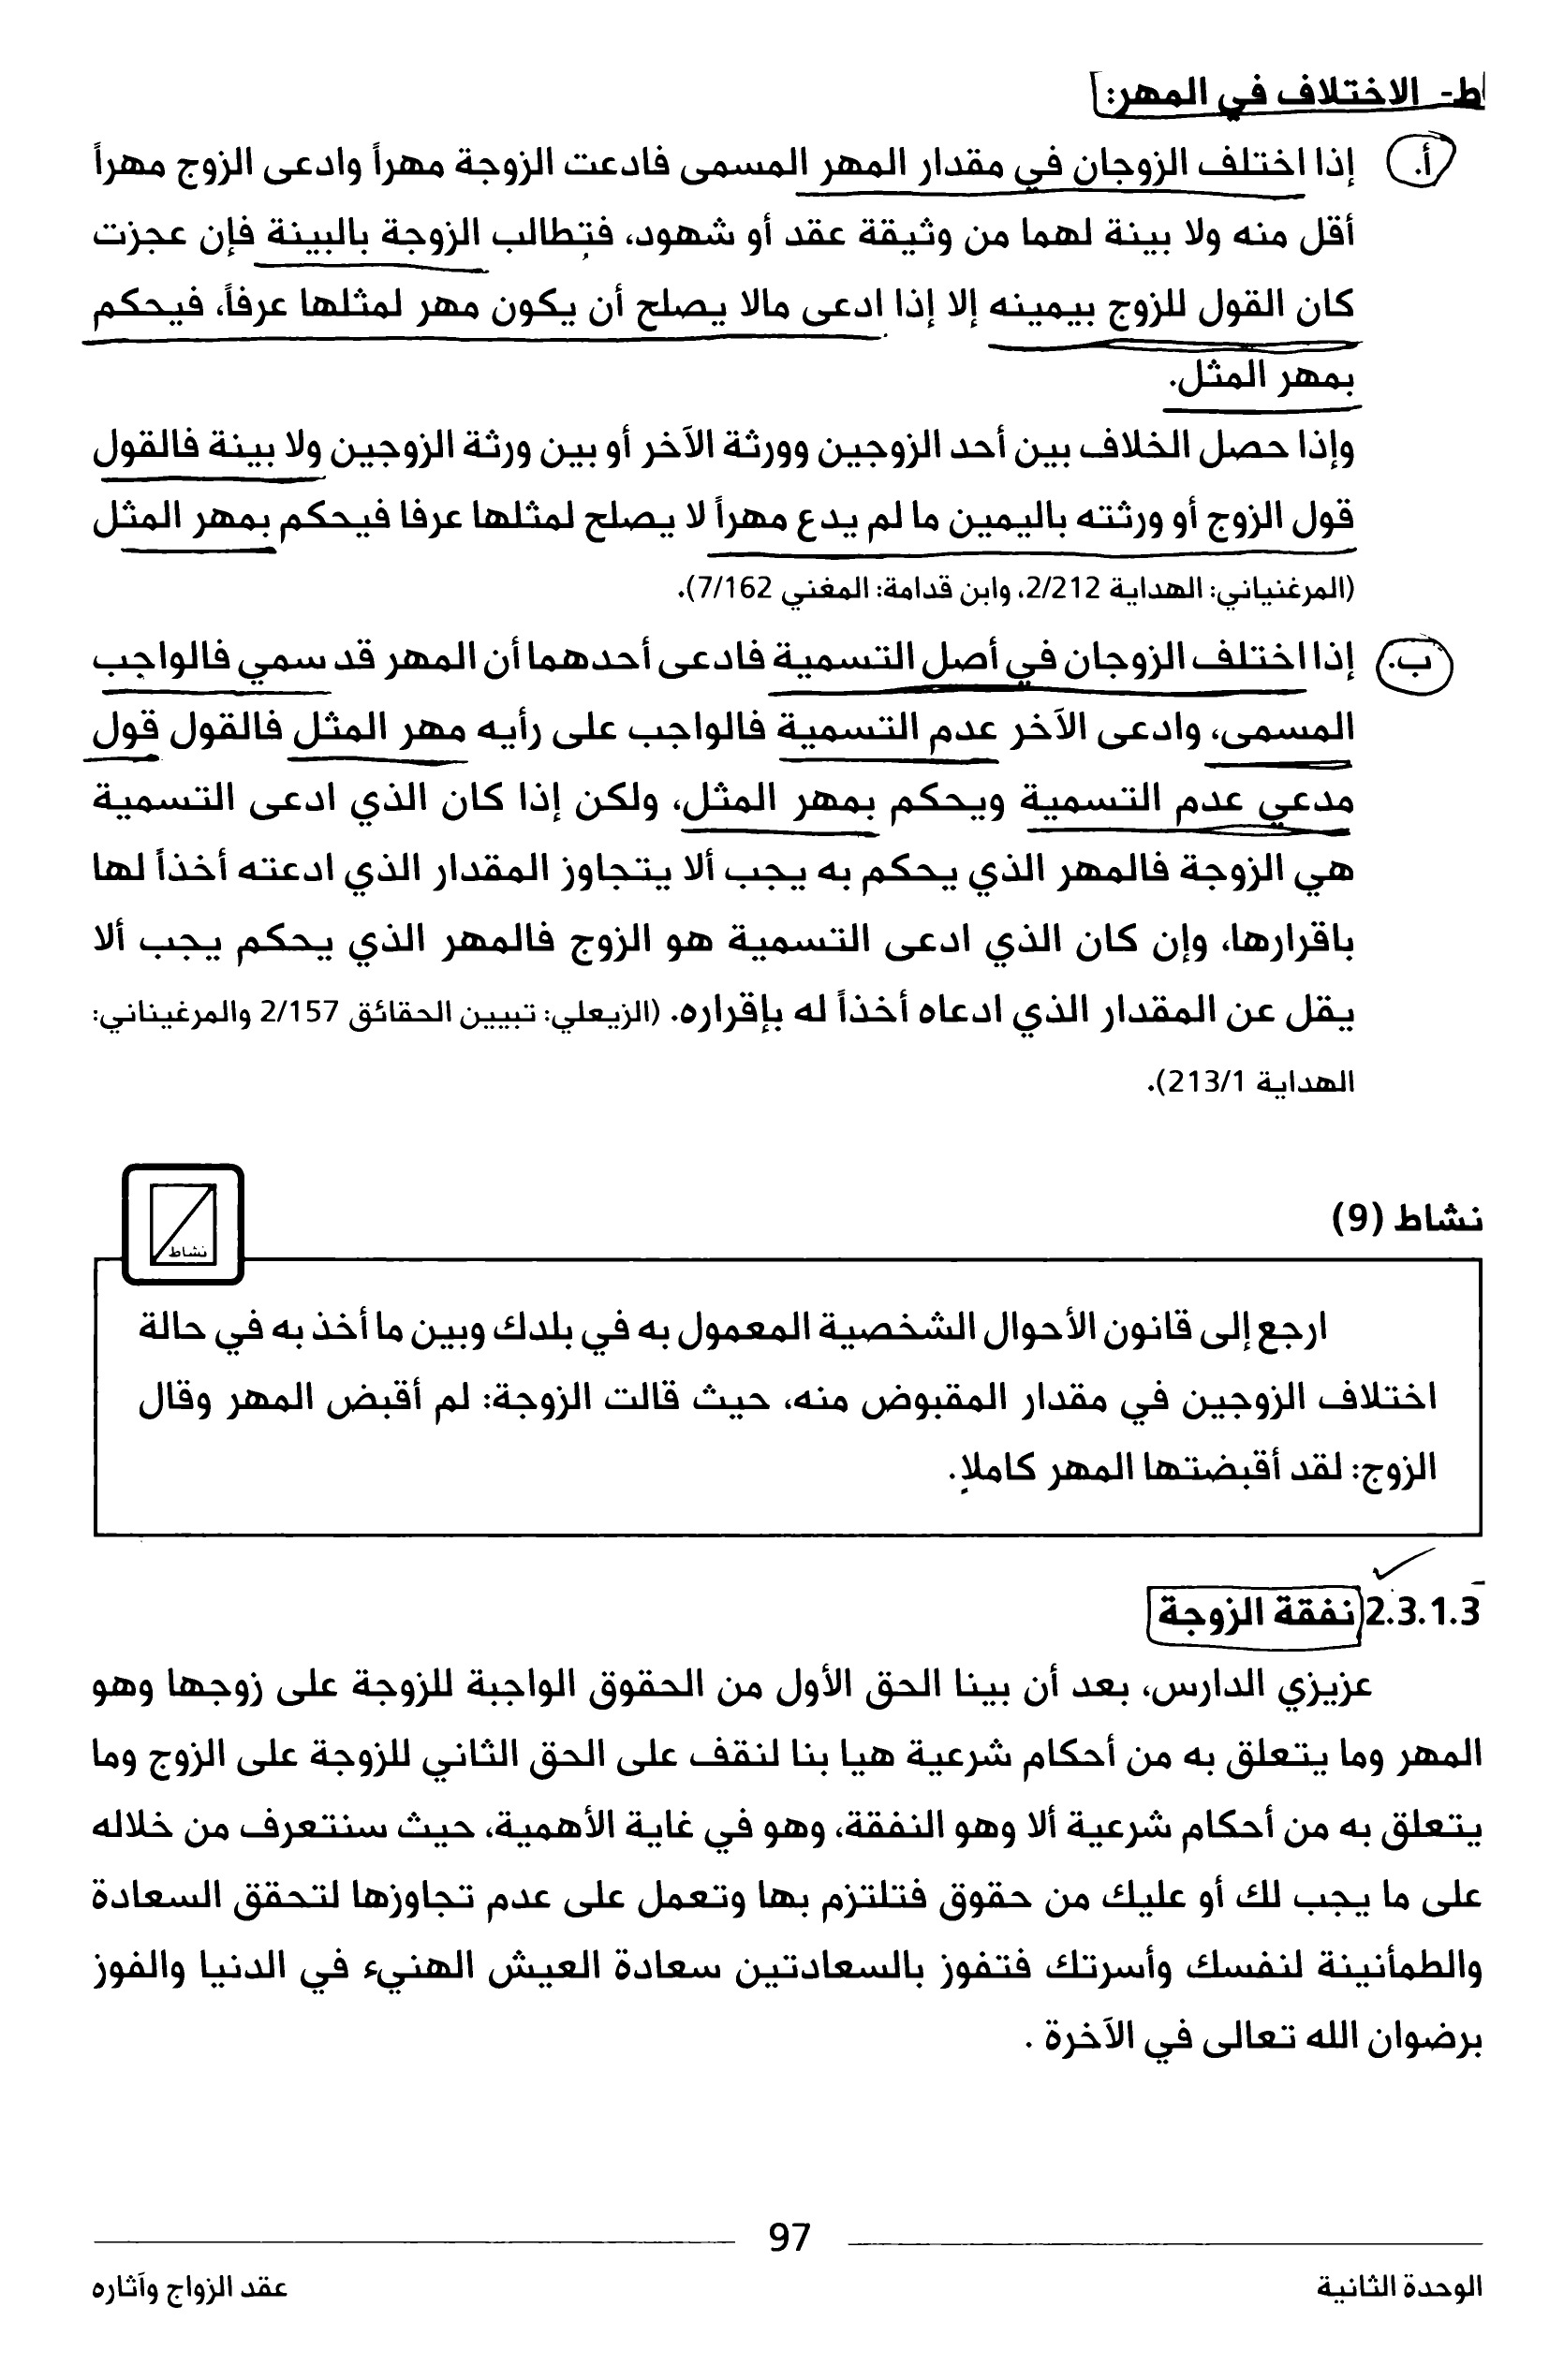 ط- الاختلاف في المهر:
أ. إذا اختلف الزوجان في مقدار المهر المسمى فادعت الزوجة مهراً وادعى الزوج مهراً
أقل منه ولا بينة لهما من وثيقة عقد أو شهود، فتطالب الزوجة بالبينة فإن عجزت
كان القول للزوج بيمينه إلا إذا ادعى مالا يصلح أن يكون مهر لمثلها عرفاً، فيحكم
بمهر المثل.
وإذا حصل الخلاف بين أحد الزوجين وورثة الآخر أو بين ورثة الزوجين ولا بينة فالقول
قول الزوج أو ورثته باليمين ما لم يدع مهراً لا يصلح لمثلها عرفا فيحكم بمهر المثل
(المرغنياني: الهداية 2/212، وابن قدامة: المغني 7/162).
ب. إذا اختلف الزوجان في أصل التسمية فادعى أحدهما أن المهر قد سمي فالواجب
المسمى، وادعى الآخر عدم التسمية فالواجب على رأيه مهر المثل فالقول قول
مدعي عدم التسمية ويحكم بمهر المثل، ولكن إذا كان الذي ادعى التسمية
هي الزوجة فالمهر الذي يحكم به يجب ألا يتجاوز المقدار الذي ادعته أخذاً لها
باقرارها، وإن كان الذي ادعى التسمية هو الزوج فالمهر الذي يحكم يجب ألا
يقل عن المقدار الذي ادعاه أخذاً له بإقراره. (الزيعلي: تبيين الحقائق 2/157 والمرغيناني:
الهداية 213/1).
نشاط (9)
نشاط
ارجع إلى قانون الأحوال الشخصية المعمول به في بلدك وبين ما أخذ به في حالة
اختلاف الزوجين في مقدار المقبوض منه، حيث قالت الزوجة: لم أقبض المهر وقال
الزوج: لقد أقبضتها المهر كاملا.
2.3.1.3 نفقة الزوجة
عزيزي الدارس، بعد أن بينا الحق الأول من الحقوق الواجبة للزوجة على زوجها وهو
المهر وما يتعلق به من أحكام شرعية هيا بنا لنقف على الحق الثاني للزوجة على الزوج وما
يتعلق به من أحكام شرعية ألا وهو النفقة، وهو في غاية الأهمية، حيث سنتعرف من خلاله
على ما يجب لك أو عليك من حقوق فتلتزم بها وتعمل على عدم تجاوزها لتحقق السعادة
والطمأنينة لنفسك وأسرتك فتفوز بالسعادتين سعادة العيش الهنيء في الدنيا والفوز
برضوان الله تعالى في الآخرة .
97
الوحدة الثانية
عقد الزواج وآثاره